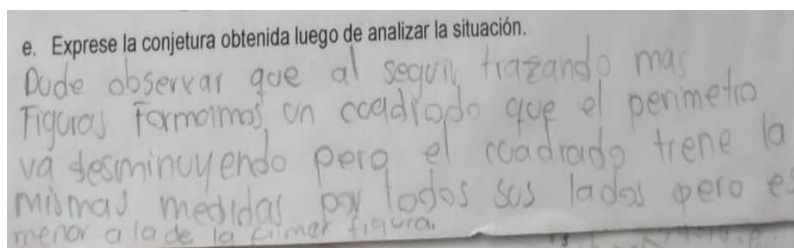 e. Exprese la conjetura obtenida luego de analizar la situación.
Pude observar que al seguir trazando mas
Figuras Formoimos un coadrodo que el perimetro
va desminuyendo pero el cuadrado trene la
mismas medidas por todos sus lados pero es
menor a la de la primer figura.